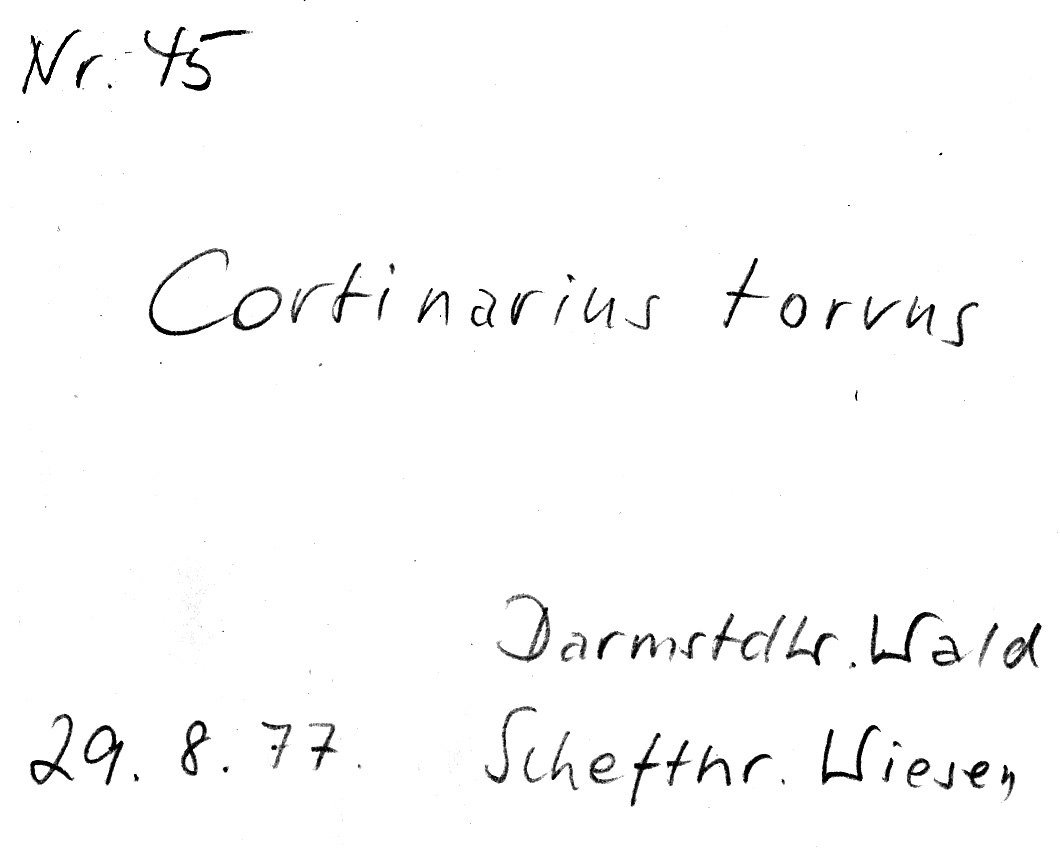 Nr. 45
Cortinarius torvus
Darmstdtr. Wald
29. 8. 77. Schefthr. Wiesen